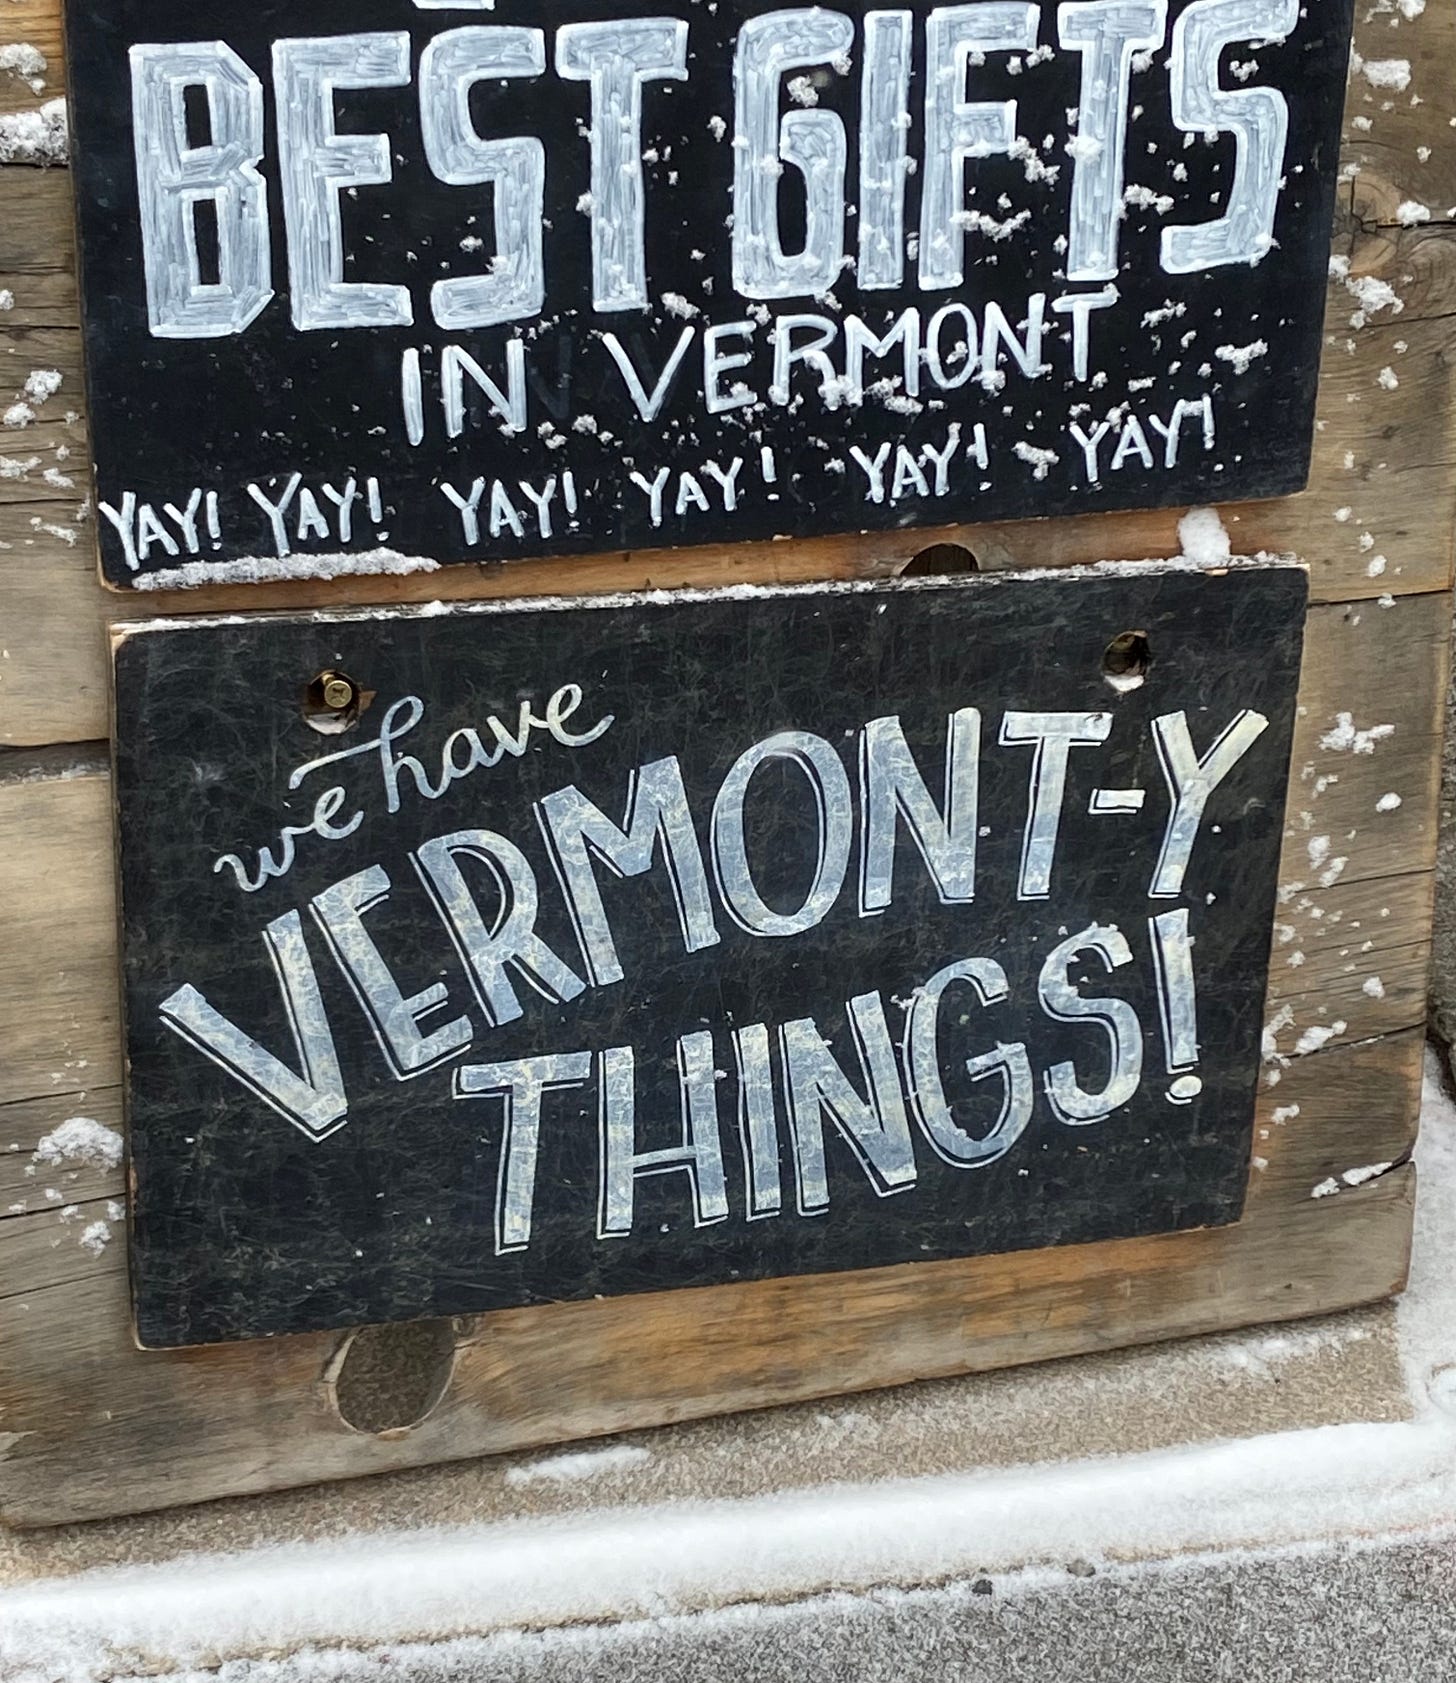 BEST GIFTS
IN VERMONT
YAY! YAY! YAY! YAY! YAY! YAY!
we have
VERMONT-Y
THINGS!